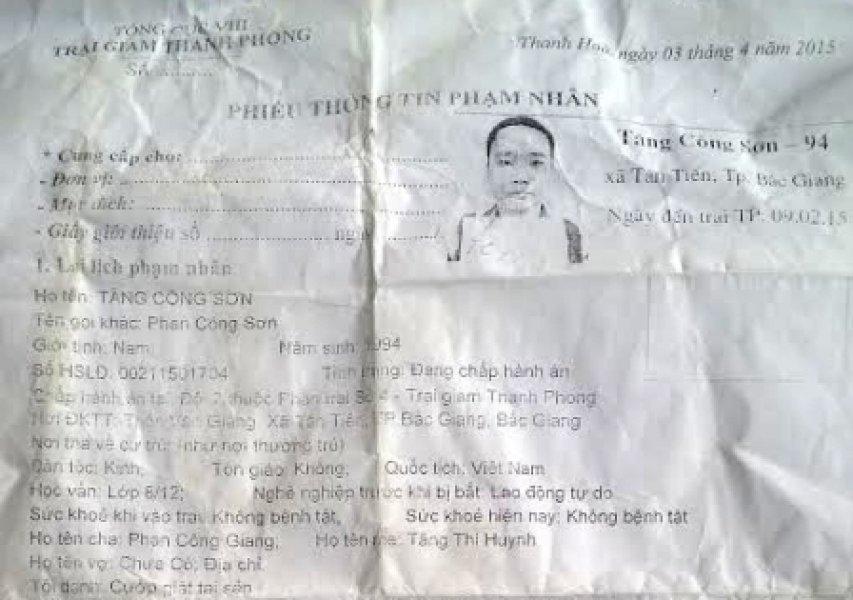 TỔNG CỤC VIII
TRẠI GIAM THANH PHONG
Số ............
Thanh Hoá, ngày 03 tháng 4 năm 2015
PHIẾU THÔNG TIN PHẠM NHÂN
* Cung cấp cho: ............
- Đơn vị: ............
- Mục đích: ............
- Giấy giới thiệu số ............ ngày ......../
Tăng Công Sơn – 94
xã Tân Tiến, Tp. Bắc Giang
Ngày đến trại TP: 09.02.15
1. Lai lịch phạm nhân
Họ tên: TĂNG CÔNG SƠN
Tên gọi khác: Phan Công Sơn
Giới tính: Nam Năm sinh: 1994
Số HSLĐ: 00211501704 Tình trạng: Đang chấp hành án
Chấp hành án tại: Đội 7 thuộc Phân trại Số 4 - Trại giam Thanh Phong
Nơi ĐKTT: Thôn Giang Xã Tân Tiến, TP Bắc Giang, Bắc Giang
Nơi tha về cư trú: (như nơi thường trú)
Dân tộc: Kinh; Tôn giáo: Không; Quốc tịch: Việt Nam
Học vấn: Lớp 8/12; Nghề nghiệp trước khi bị bắt: Lao động tự do
Sức khoẻ khi vào trại: Không bệnh tật, Sức khoẻ hiện nay: Không bệnh tật
Họ tên cha: Phan Công Giang; Họ tên mẹ: Tăng Thị Huynh
Họ tên vợ: Chưa Có; Địa chỉ:
Tội danh: Cướp giật tài sản